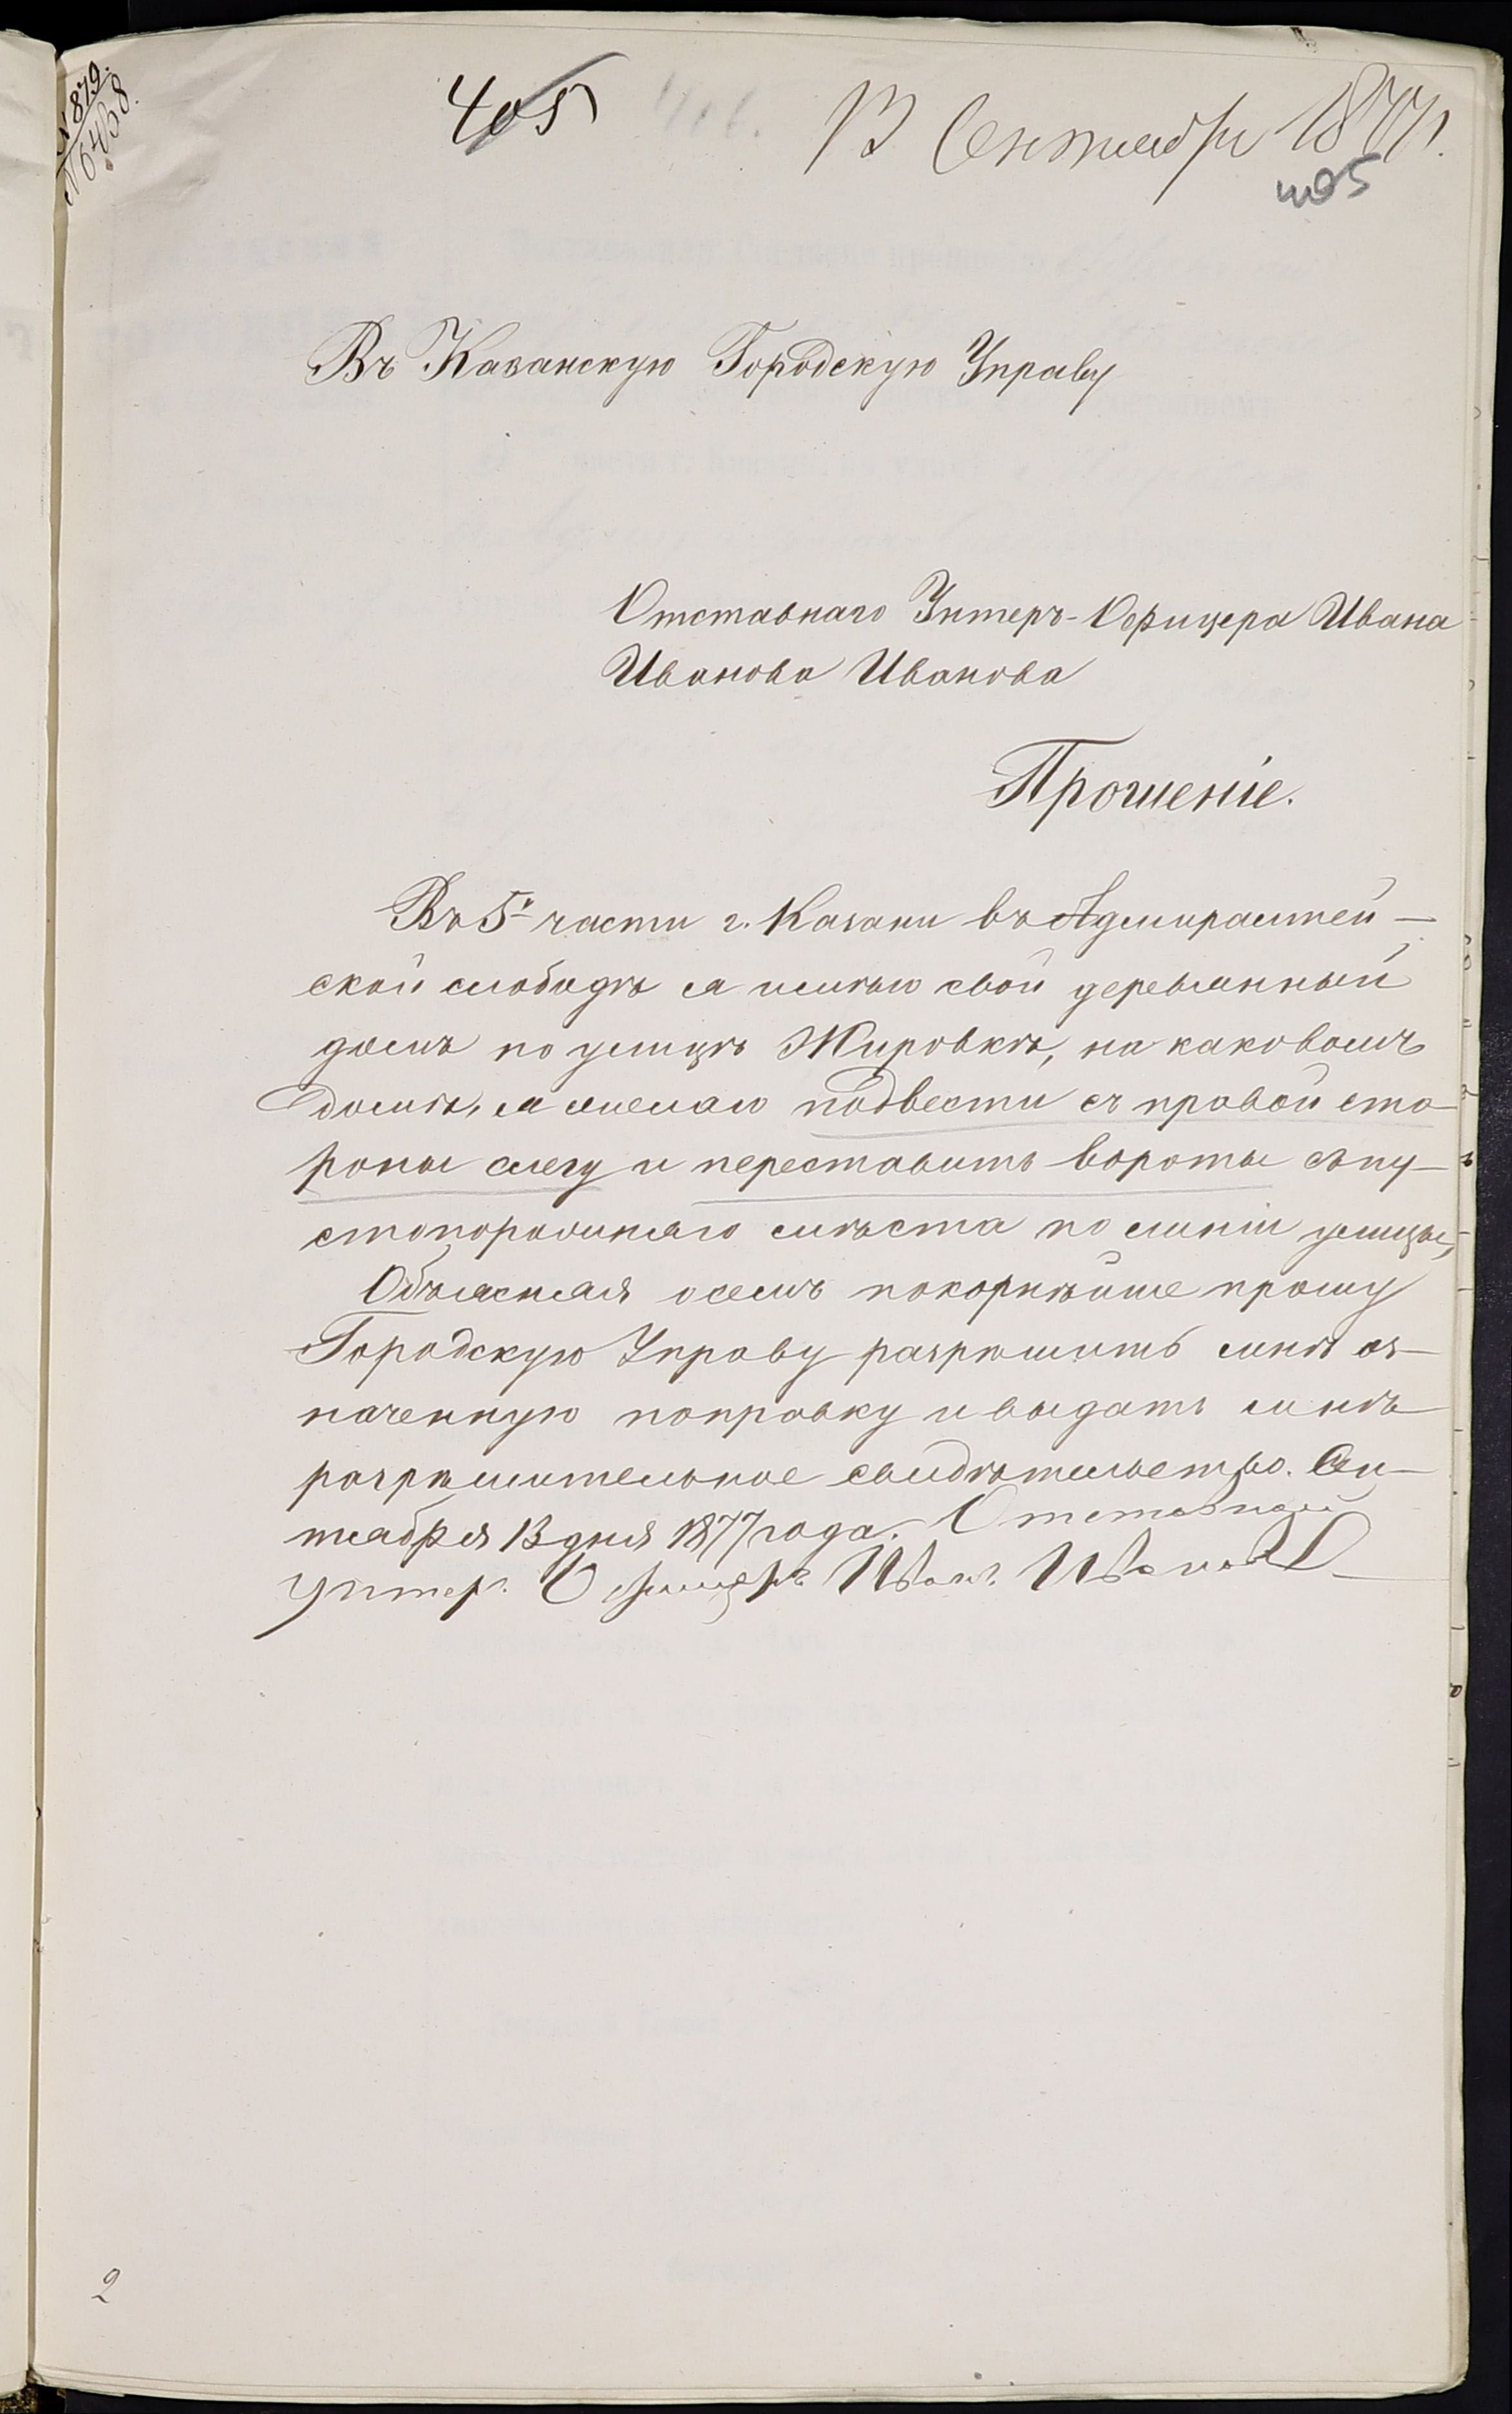 № 879.
№ 6468.
405
13 Сентября 1877 г.
405
Въ Казанскую Городскую Управу
Отставнаго Унтеръ-Офицера Ивана
Иванова Иванова
Прошеніе.
Въ 5й части г. Казани въ Адмиралтей-
ской слободѣ я имѣю свой деревянный
домъ по улицѣ Жировкѣ, на каковомъ
домѣ, я желаю подвести съ правой сто-
роны слегу и переставить вороты съ пу-
стопорожняго мѣста по линіи улицы,
Объясняя о семъ покорнѣйше прошу
Городскую Управу разрѣшить мнѣ оз-
наченную поправку и выдать мнѣ
разрѣшительное свидѣтельство. Сен-
тября 13 дня 1877 года. Отставной
унтер. Офицеръ Иван. Иванов
2